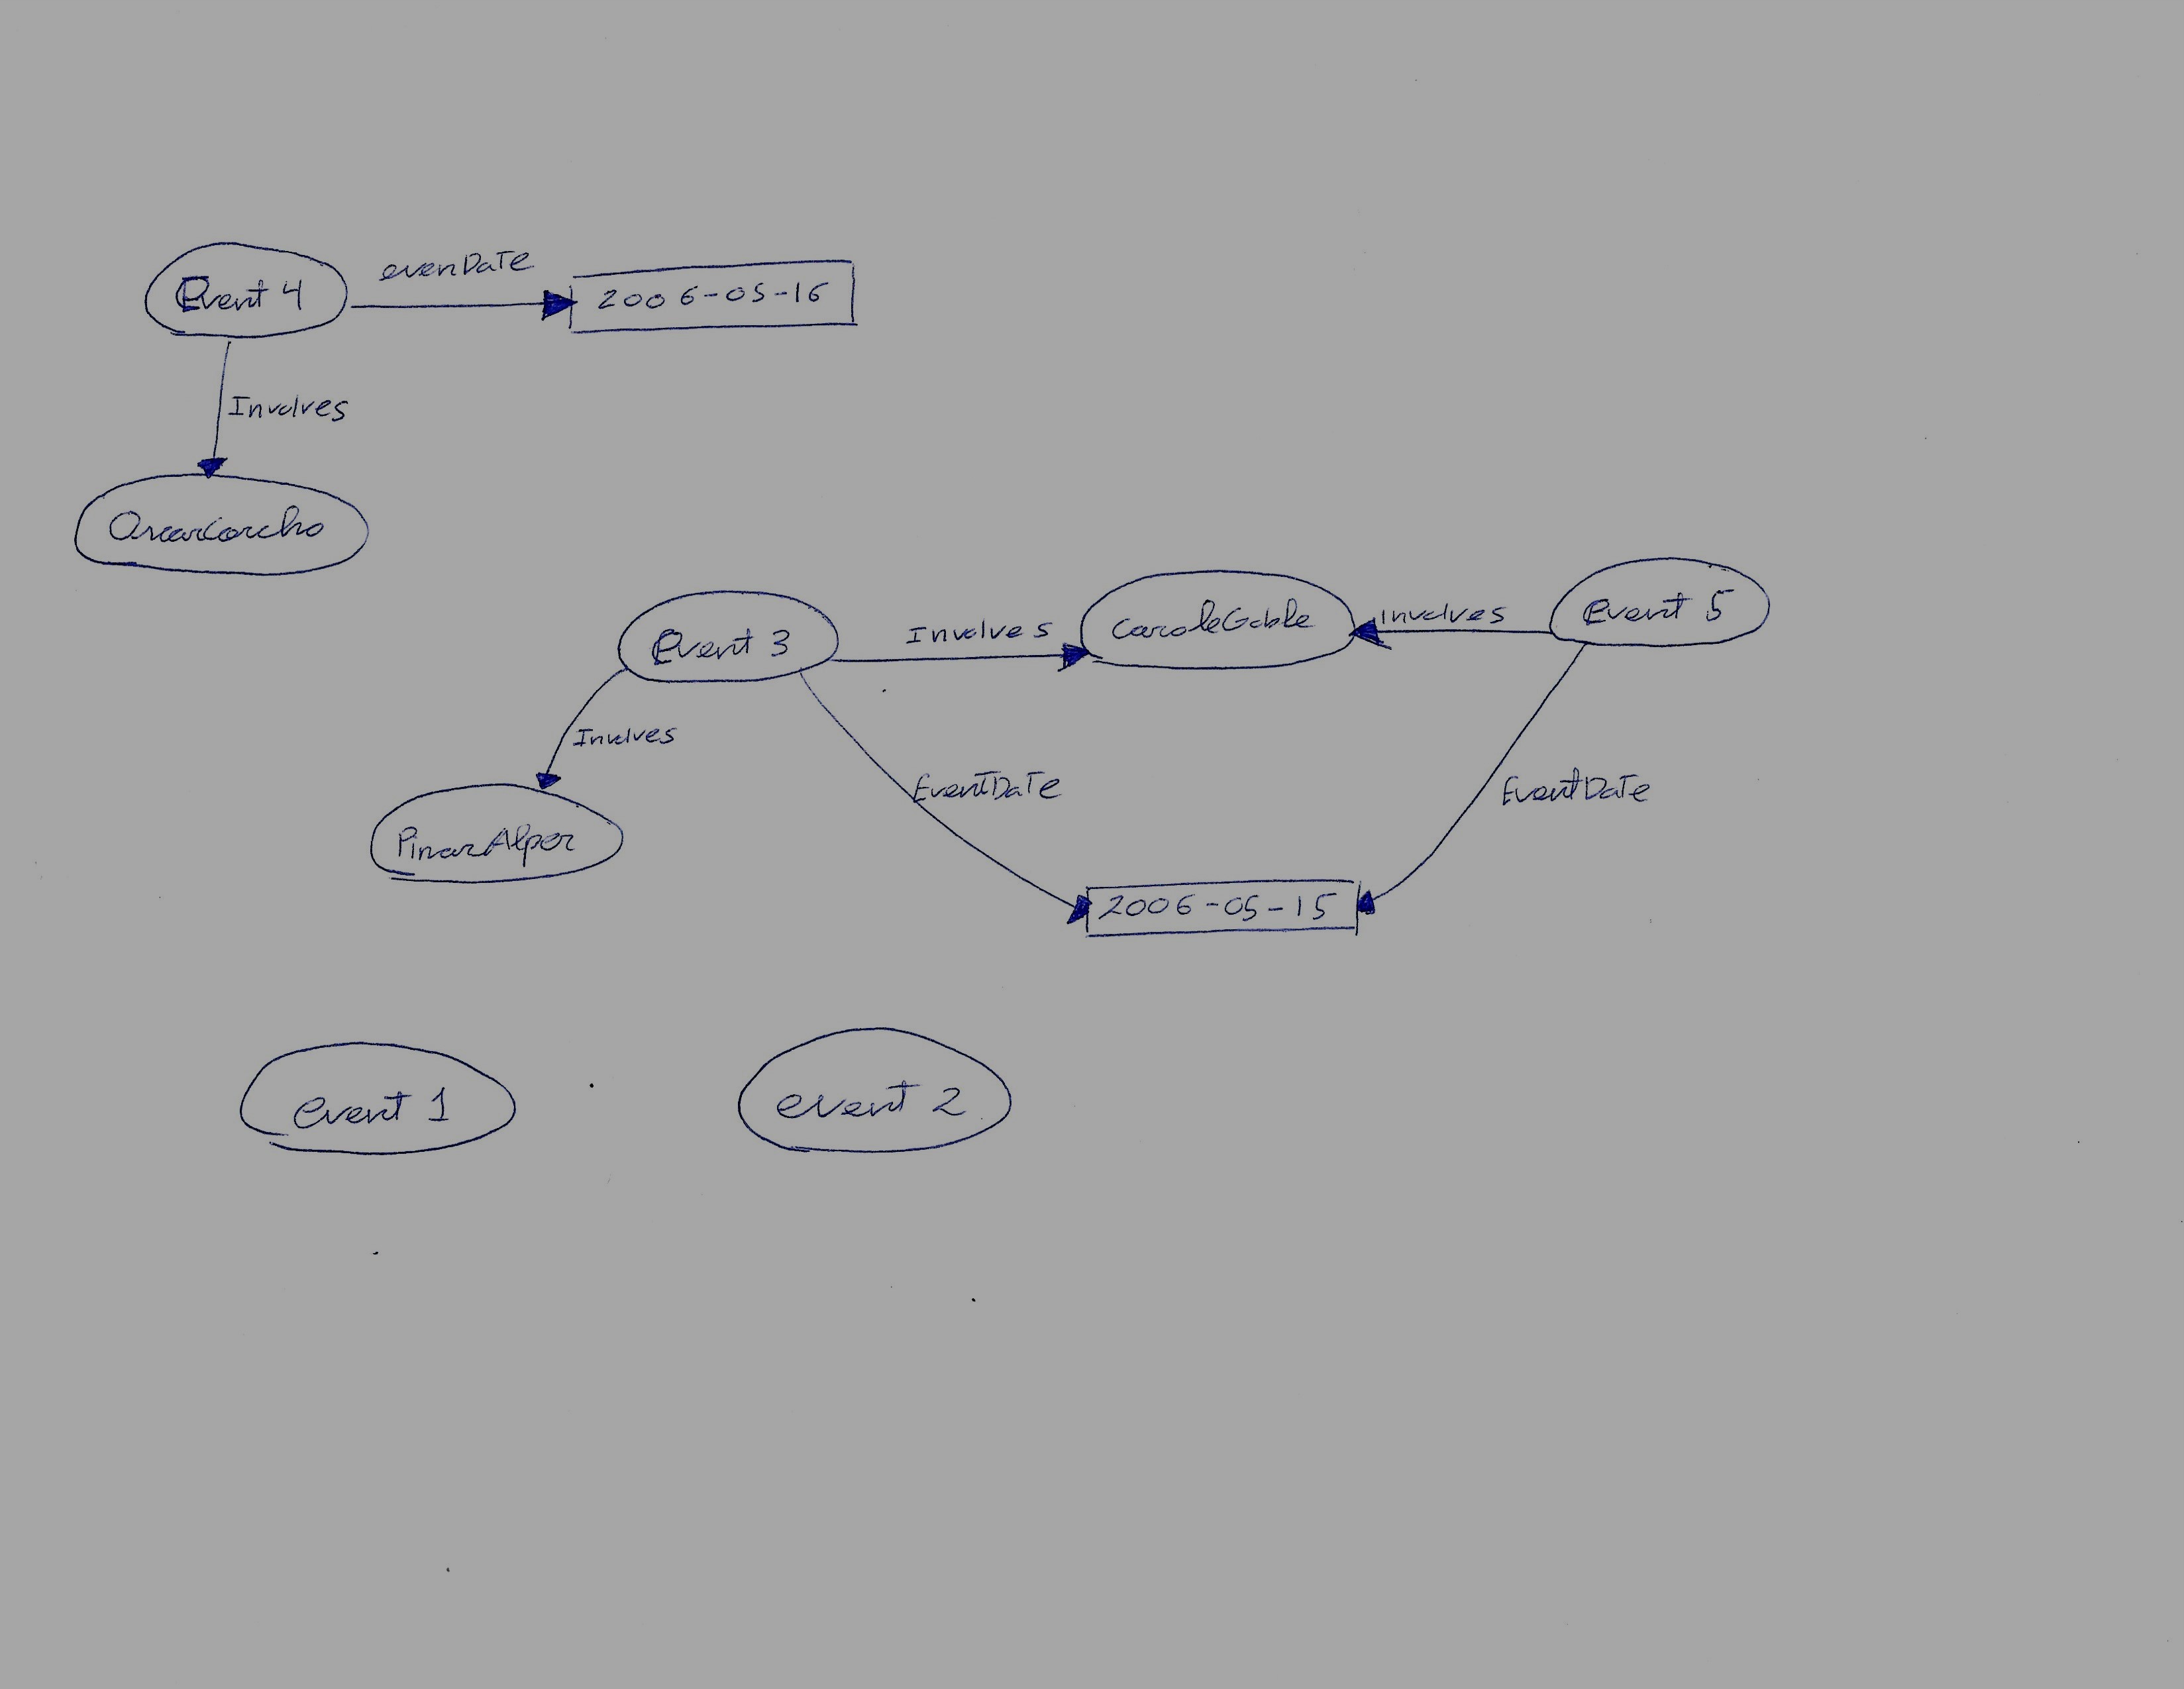 evenDate
Event 4
2006-05-16
Involves
OscarCorcho
Event 3
Involves
CaroleGoble
Involves
Event 5
Involves
EventDate
EventDate
PinarAlper
2006-05-15
event 1
event 2